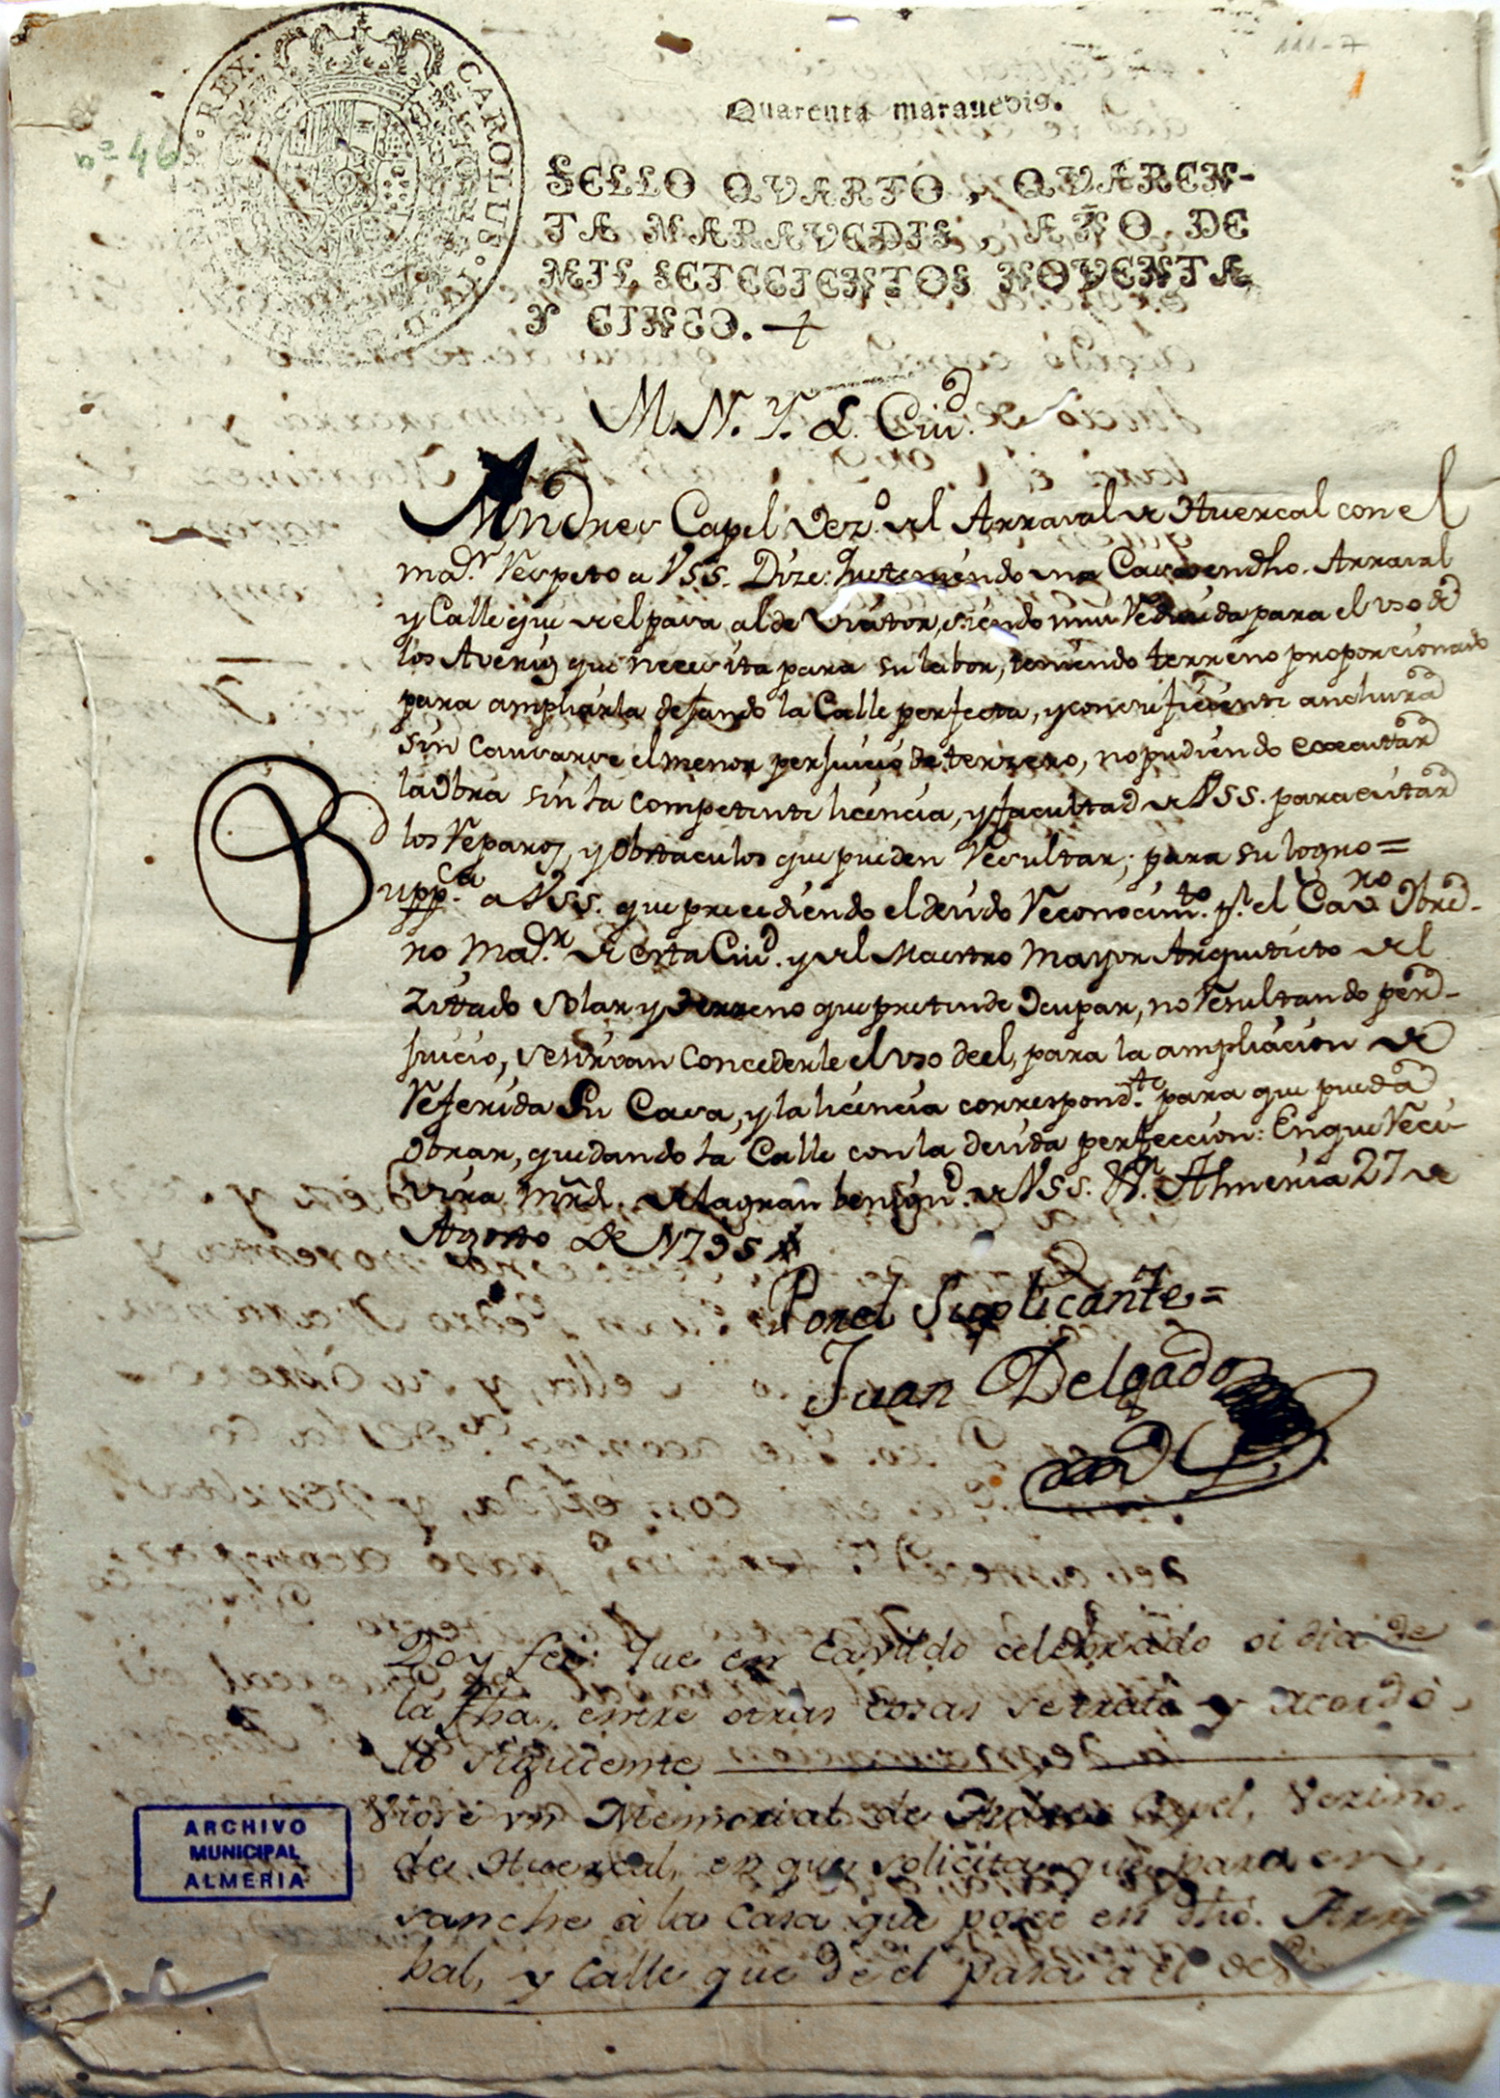 111-7
nº 46
CAROLUS · IV · D · G · REX ·
Quarenta maravedis.
SELLO QVARTO, QVAREN-
TA MARAVEDIS, AÑO DE
MIL SETECIENTOS NOVENTA
Y CINCO. +
M. N. Y. L. Ciud.
Andres Capel Vezº. del Arraval de Huercal con el
maor. Respeto a VSS. Dize: Que teniendo una Casa en dho. Arraval
y Calle que de el pasa al de Viator, siendo mui Reducida para el uso de
los Averios que necesita para su labor, teniendo terreno proporcionado
para ampliarla dejando la Calle perfecta, y con suficiente anchura
sin causarse el menor perjuicio de terzero, no pudiendo executar
la Obra sin la competente licencia, y facultad de VSS. para evitar
los Reparos, y Obstaculos que pueden Resultar; para su logro =
Suppca. a VSS. que precediendo el devido Reconocimto. pr. el Cavro. Obre-
ro Maor. de esta Ciud. y del Maestro Mayor Arquitecto del
Zittado Solar y terreno que pretende Ocupar, no Resultando per-
juicio, se sirvan Concederle el uso de el, para la ampliacion de
Referida Su Casa, y la licencia correspondte. para que pueda
Obrar, quedando la Calle con la devida perfeccion: En que Reci-
vira Mrd. de la gran benignd. de VSS. Almeria 27 de
Agosto de 1795
Por el Suplicante =
Juan Delgado
Doy feé: Que en Cavildo celebrado oi dia de
la fha., entre otras cosas se trató y acordó
lo siguiente
Viose un Memorial de Andres Capel, Vezino
de Huercal, en que solicita que para en-
sanche à la Casa que posee en dho. Arra
bal, y Calle que de él pasa a el de
ARCHIVO
MUNICIPAL
ALMERIA